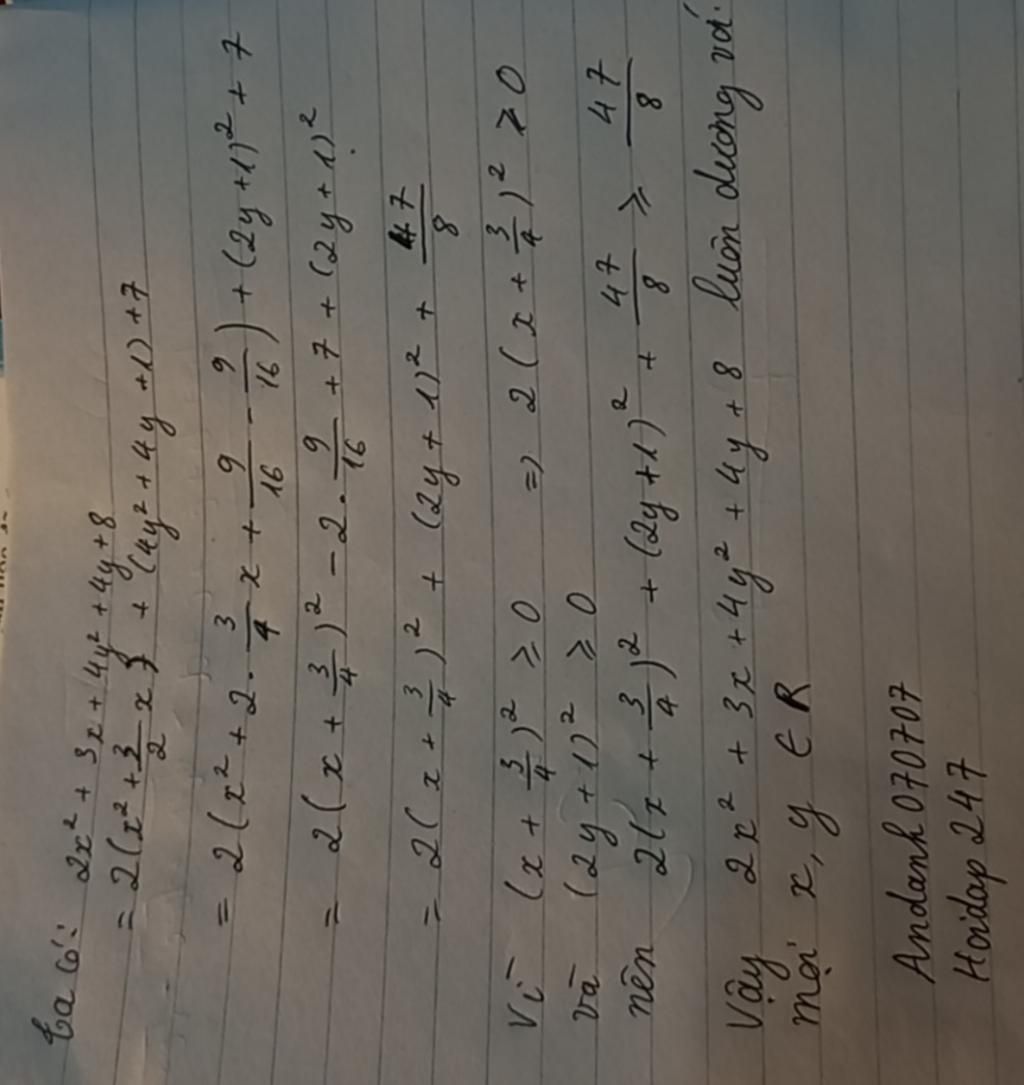 Ta có: 2x² + 3x + 4y² + 4y + 8
= 2(x² + 3/2 x) + (4y² + 4y + 1) + 7
= 2(x² + 2 · 3/4 x + 9/16 - 9/16) + (2y + 1)² + 7
= 2(x + 3/4)² - 2 · 9/16 + 7 + (2y + 1)².
= 2(x + 3/4)² + (2y + 1)² + 47/8
Vì (x + 3/4)² ≥ 0 => 2(x + 3/4)² ≥ 0
và (2y + 1)² ≥ 0
nên 2(x + 3/4)² + (2y + 1)² + 47/8 ≥ 47/8
Vậy 2x² + 3x + 4y² + 4y + 8 luôn dương vá.
mọi x, y ∈ R
Andanh070707
Hoidap247